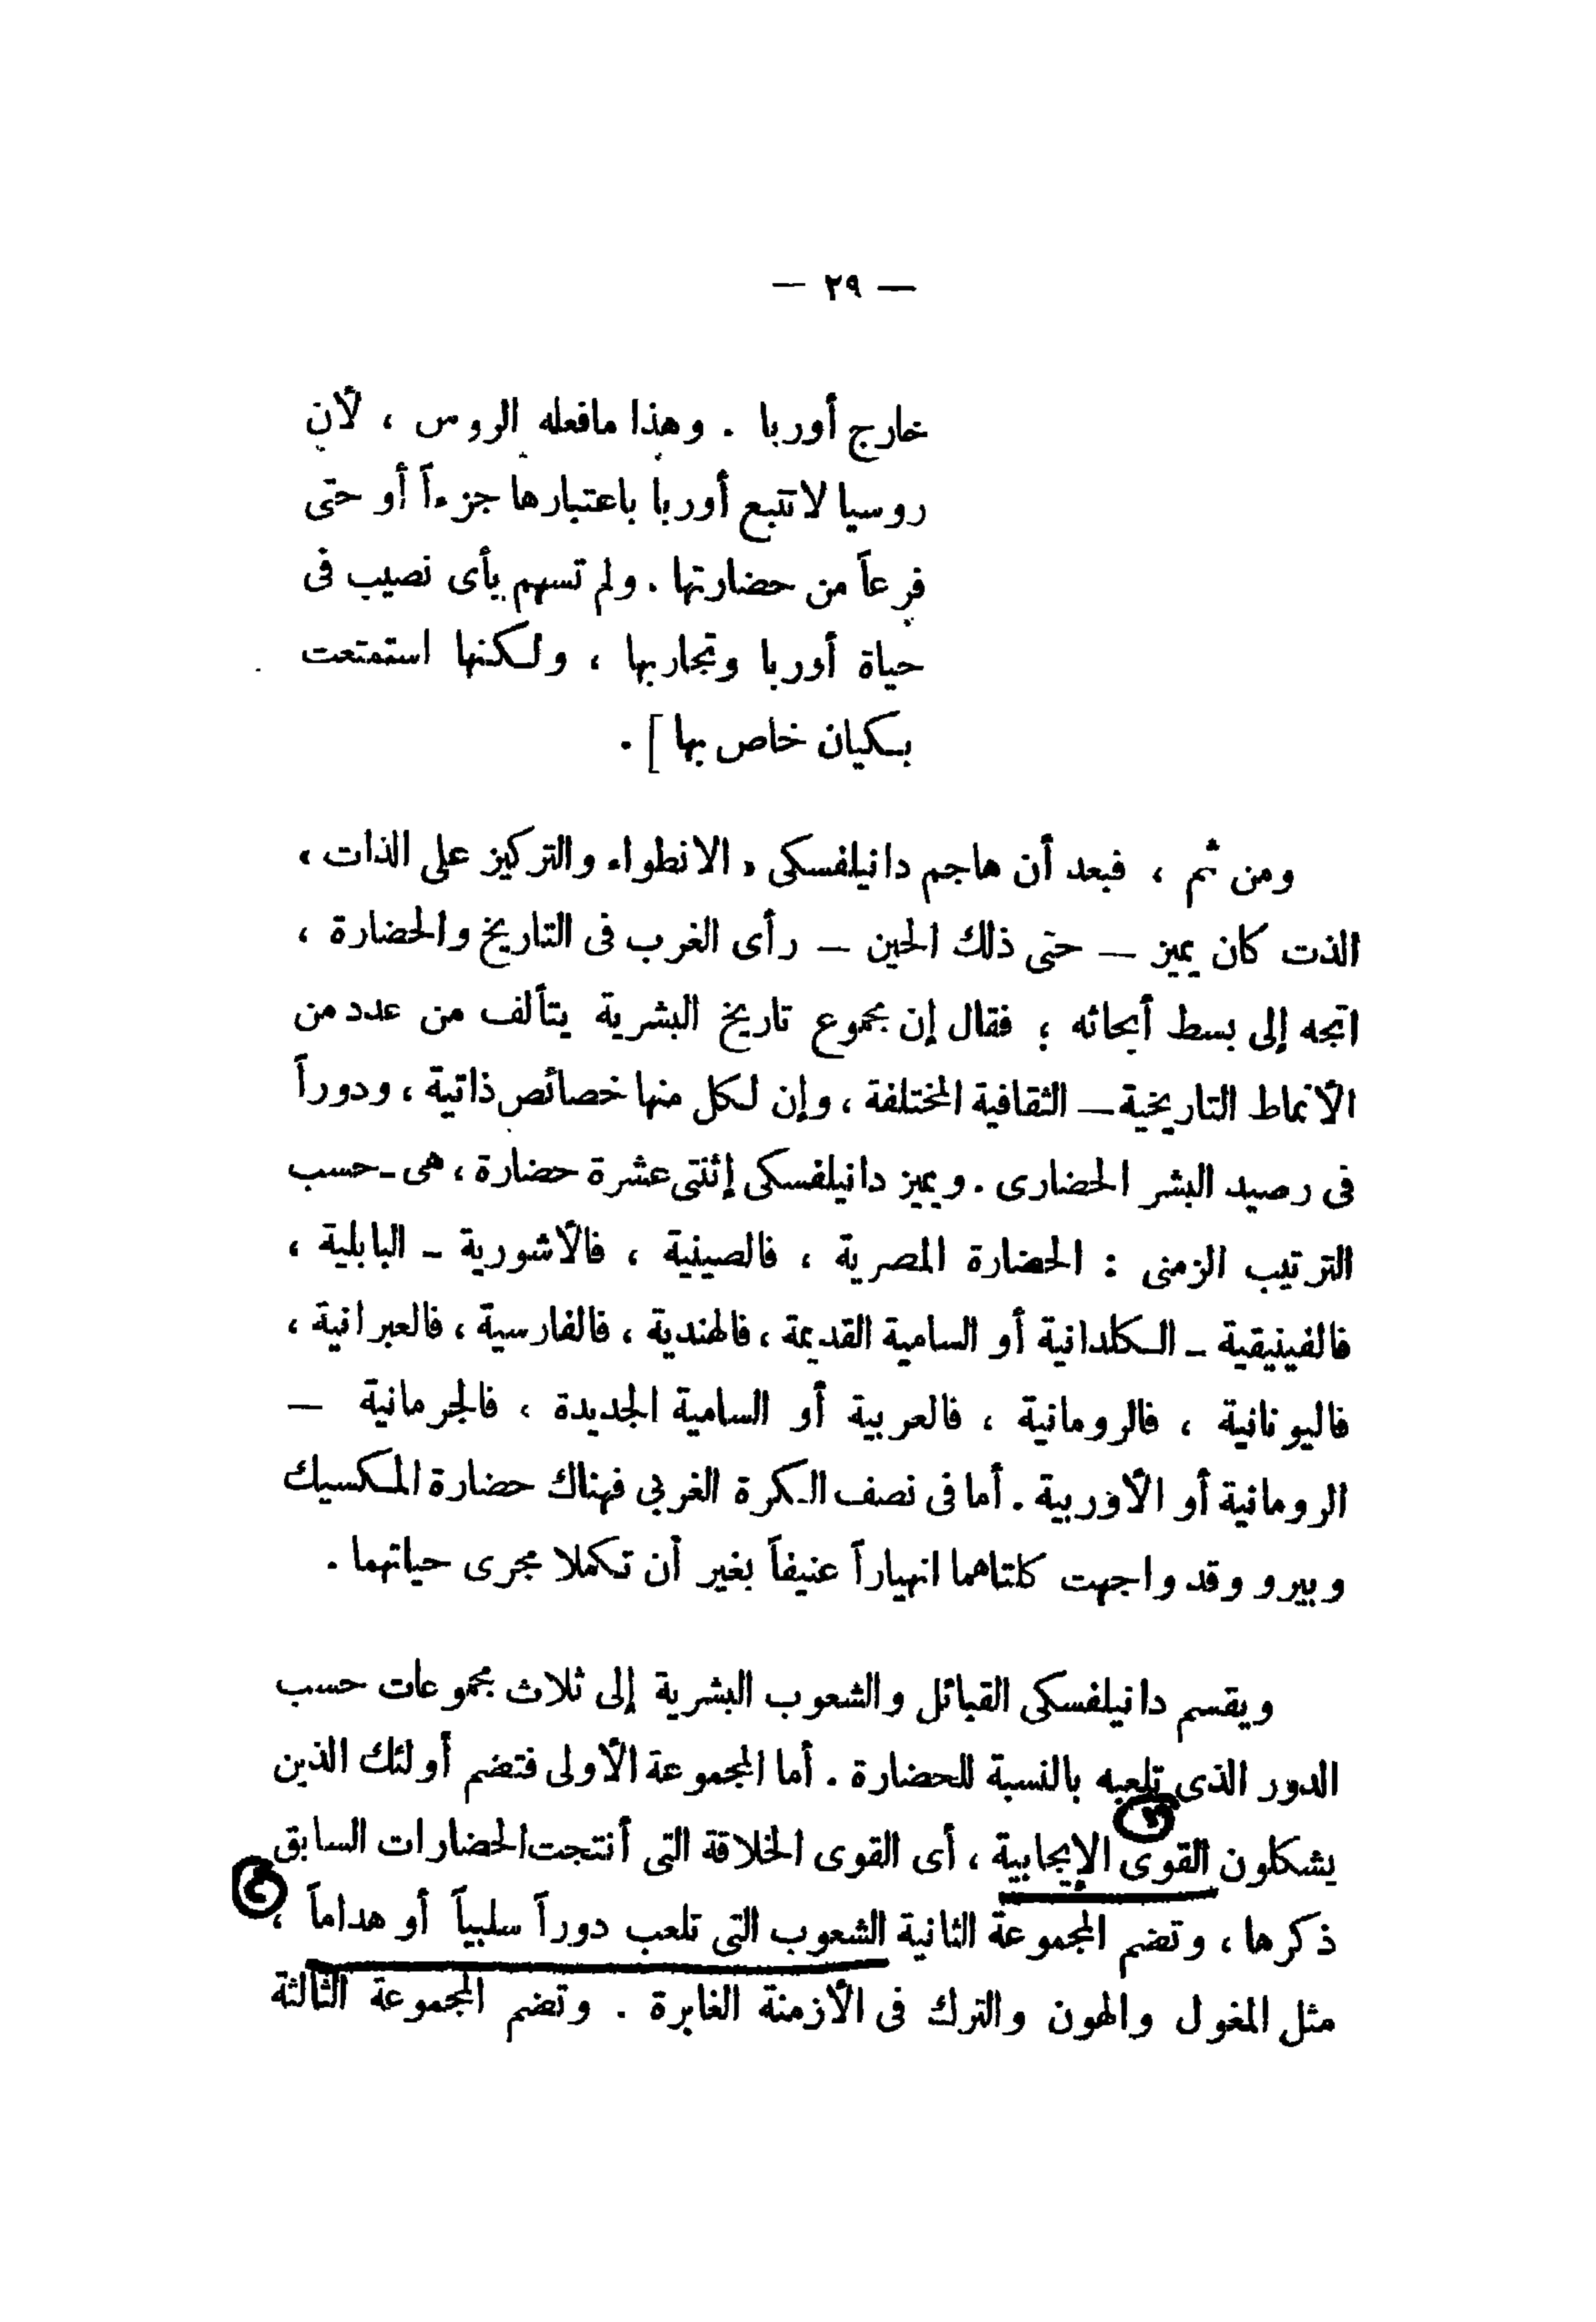 — ٢٩ —
خارج أوربا . وهذا مافعله الروس ، لأن
روسيا لاتتبع أوربا باعتبارها جزءاً أو حتى
فرعاً من حضارتها . ولم تسهم بأى نصيب فى
حياة أوربا وتجاربها ، ولكنها استمتعت
بكيان خاص بها ] .
ومن ثم ، فبعد أن هاجم دانيلفسكى « الانطواء والتركيز على الذات »
الذت كان يميز — حتى ذلك الحين — رأى الغرب فى التاريخ والحضارة ،
اتجه إلى بسط أبحاثه ؛ فقال إن مجموع تاريخ البشرية يتألف من عدد من
الأنماط التاريخية — الثقافية المختلفة ، وإن لكل منها خصائص ذاتية ، ودوراً
فى رصيد البشر الحضارى . ويميز دانيلفسكى إثنتى عشرة حضارة ، هى - حسب
الترتيب الزمنى : الحضارة المصرية ، فالصينية ، فالأشورية - البابلية ،
فالفينيقية - الكلدانية أو السامية القديمة ، فالهندية ، فالفارسية ، فالعبرانية ،
فاليونانية ، فالرومانية ، فالعربية أو السامية الجديدة ، فالجرمانية —
الرومانية أو الأوربية . أما فى نصف الكرة الغربى فهناك حضارة المكسيك
وبيرو وقد واجهت كلتاهما انهياراً عنيفاً بغير أن تكملا مجرى حياتهما .
ويقسم دانيلفسكى القبائل والشعوب البشرية إلى ثلاث مجموعات حسب
الدور الذى تلعبه بالنسبة للحضارة . أما المجموعة الأولى فتضم أولئك الذين
يشكلون القوى الإيجابية ، أى القوى الخلاقة التى أنتجت الحضارات السابق
ذكرها ، وتضم المجموعة الثانية الشعوب التى تلعب دوراً سلبياً أو هداماً ،
مثل المغول والهون والترك فى الأزمنة الغابرة . وتضم المجموعة الثالثة